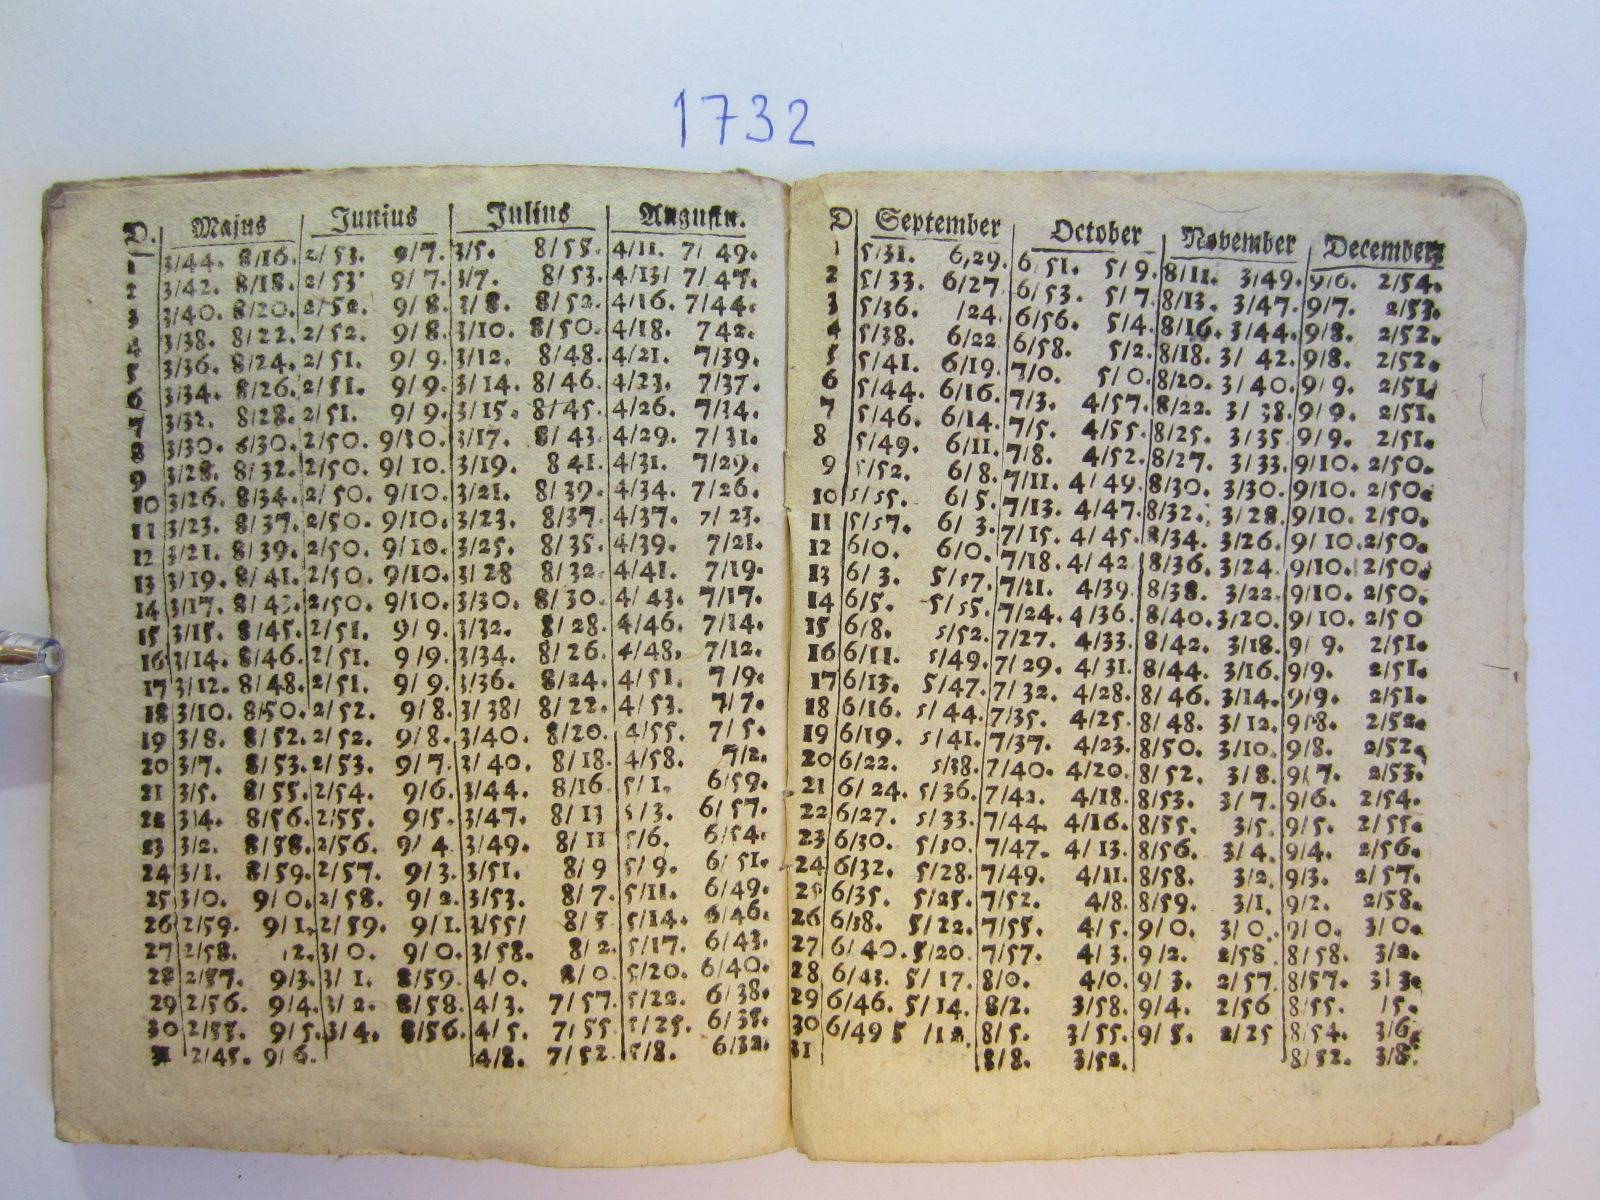 1732
D. Majus Junius Julius August.
1 3/44. 8/16. 2/53. 9/7. 3/5. 8/58. 4/11. 7/49.
2 3/42. 8/18. 2/53 9/7. 3/7. 8/53. 4/13/ 7/47.
3 3/40. 8/20. 2/52. 9/8. 3/8. 8/52. 4/16. 7/44.
4 3/38. 8/22. 2/52. 9/8. 3/10. 8/50. 4/18. 742.
5 3/36. 8/24. 2/51. 9/9. 3/12. 8/48. 4/21. 7/39.
6 3/34. 8/26. 2/51. 9/9. 3/14. 8/46. 4/23. 7/37.
7 3/32. 8/28. 2/51. 9/9. 3/15. 8/45. 4/26. 7/34.
8 3/30. 8/30. 2/50. 9/10. 3/17. 8/43. 4/29. 7/31.
9 3/28. 8/32. 2/50. 9/10. 3/19. 841. 4/31. 7/29.
10 3/26. 8/34. 2/50. 9/10. 3/21. 8/39. 4/34. 7/26.
11 3/23. 8/37. 2/50. 9/10. 3/23. 8/37. 4/37. 7/23.
12 3/21. 8/39. 2/50. 9/10. 3/25. 8/35. 4/39. 7/21.
13 3/19. 8/41. 2/50. 9/10. 3/28 8/32. 4/41. 7/19.
14 3/17. 8/43. 2/50. 9/10. 3/30. 8/30. 4/43. 7/17.
15 3/15. 8/45. 2/51. 9/9. 3/32. 8/28. 4/46. 7/14.
16 3/14. 8/46. 2/51. 9/9. 3/34. 8/26. 4/48. 7/12.
17 3/12. 8/48. 2/51. 9/9. 3/36. 8/24. 4/51. 7/9.
18 3/10. 8/50. 2/52. 9/8. 3/38/ 8/22. 4/53. 7/7.
19 3/8. 8/52. 2/52. 9/8. 3/40. 8/20. 4/55. 7/5.
20 3/7. 8/53. 2/53. 9/7. 3/40. 8/18. 4/58. 7/2.
21 3/5. 8/55. 2/54. 9/6. 3/44. 8/16. 5/1. 6/59.
22 3/4. 8/56. 2/55. 9/5. 3/47. 8/13 5/3. 6/57.
23 3/2. 8/58. 2/56. 9/4. 3/49. 8/11 5/6. 6/54.
24 3/1. 8/59. 2/57. 9/3. 3/51. 8/9 5/9. 6/51.
25 3/0. 9/0. 2/58. 9/2. 3/53. 8/7. 5/11. 6/49.
26 2/59. 9/1. 2/59. 9/1. 3/55/ 8/5 5/14. 6/46.
27 2/58. 2. 3/0. 9/0. 3/58. 8/2. 5/17. 6/43.
28 2/57. 9/3. 3/1. 8/59. 4/0. 8/0. 5/20. 6/40.
29 2/56. 9/4. 3/2. 8/58. 4/3. 7/57. 5/22. 6/38.
30 2/55. 9/5. 3/4. 8/56. 4/5. 7/55. 5/25. 6/35.
31 2/45. 9/6. 4/8. 7/52. 5/8. 6/32.
D September October November December
1 5/31. 6,29. 6 51. 5/9. 8/11. 3/49. 9/6. 2/54.
2 5/33. 6/27 6/53. 5/7. 8/13. 3/47. 9/7. 2/53.
3 5/36. /24. 6/56. 5/4. 8/16. 3/44. 9/8. 2/52.
4 5/38. 6/22 6/58. 5/2. 8/18. 3/42. 9/8. 2/52.
5 5/41. 6/19. 7/0. 5/0. 8/20. 3/40. 9/9. 2/51.
6 5/44. 6/16. 7/3. 4/57. 8/22. 3/38. 9/9. 2/51.
7 5/46. 6/14. 7/5. 4/55. 8/25. 3/35. 9/9. 2/51.
8 5/49. 6/11. 7/8. 4/52. 8/27. 3/33. 9/10. 2/50.
9 5/52. 6/8. 7/11. 4/49. 8/30. 3/30. 9/10. 2/50.
10 5/55. 6/5. 7/13. 4/47. 8/32. 3/28. 9/10. 2/50.
11 5/57. 6/3. 7/15. 4/45. 8/34. 3/26. 9/10. 2/50.
12 6/0. 6/0. 7/18. 4/42 8/36. 3/24. 9/10. 2/50.
13 6/3. 5/57. 7/21. 4/39. 8/38. 3/22. 9/10. 2/50.
14 6/5. 5/55. 7/24. 4/36. 8/40. 3/20. 9/10. 2/50
15 6/8. 5/52. 7/27. 4/33. 8/42. 3/18. 9/9. 2/51.
16 6/11. 5/49. 7/29. 4/31. 8/44. 3/16. 9/9. 2/51.
17 6/13. 5/47. 7/32. 4/28. 8/46. 3/14. 9/9. 2/51.
18 6/16. 5/44. 7/35. 4/25. 8/48. 3/12. 9/8. 2/52.
19 6/19. 5/41. 7/37. 4/23. 8/50. 3/10. 9/8. 2/52.
20 6/22. 5/38. 7/40. 4/20. 8/52. 3/8. 9/7. 2/53.
21 6/24. 5/36. 7/42. 4/18. 8/53. 3/7. 9/6. 2/54.
22 6/27. 5/33. 7/44. 4/16. 8/55. 3/5. 9/5. 2/55.
23 6/30. 5/30. 7/47. 4/13. 8/56. 3/4. 9/4. 2/56.
24 6/32. 5/28. 7/49. 4/11. 8/58. 3/2. 9/3. 2/57.
25 6/35. 5/25. 7/52. 4/8. 8/59. 3/1. 9/2. 2/58.
26 6/38. 5/22. 7/55. 4/5. 9/0. 3/0. 9/0. 3/0.
27 6/40. 5/20. 7/57. 4/3. 9/2. 2/58 8/58. 3/2.
28 6/43. 5/17. 8/0. 4/0. 9/3. 2/57 8/57. 3/3.
29 6/46. 5/14. 8/2. 3/58. 9/4. 2/56 8/55. /5.
30 6/49 5/12. 8/5. 3/55. 9/5. 2/25 8/54. 3/6.
31 8/8. 3/52. 8/52. 3/8.